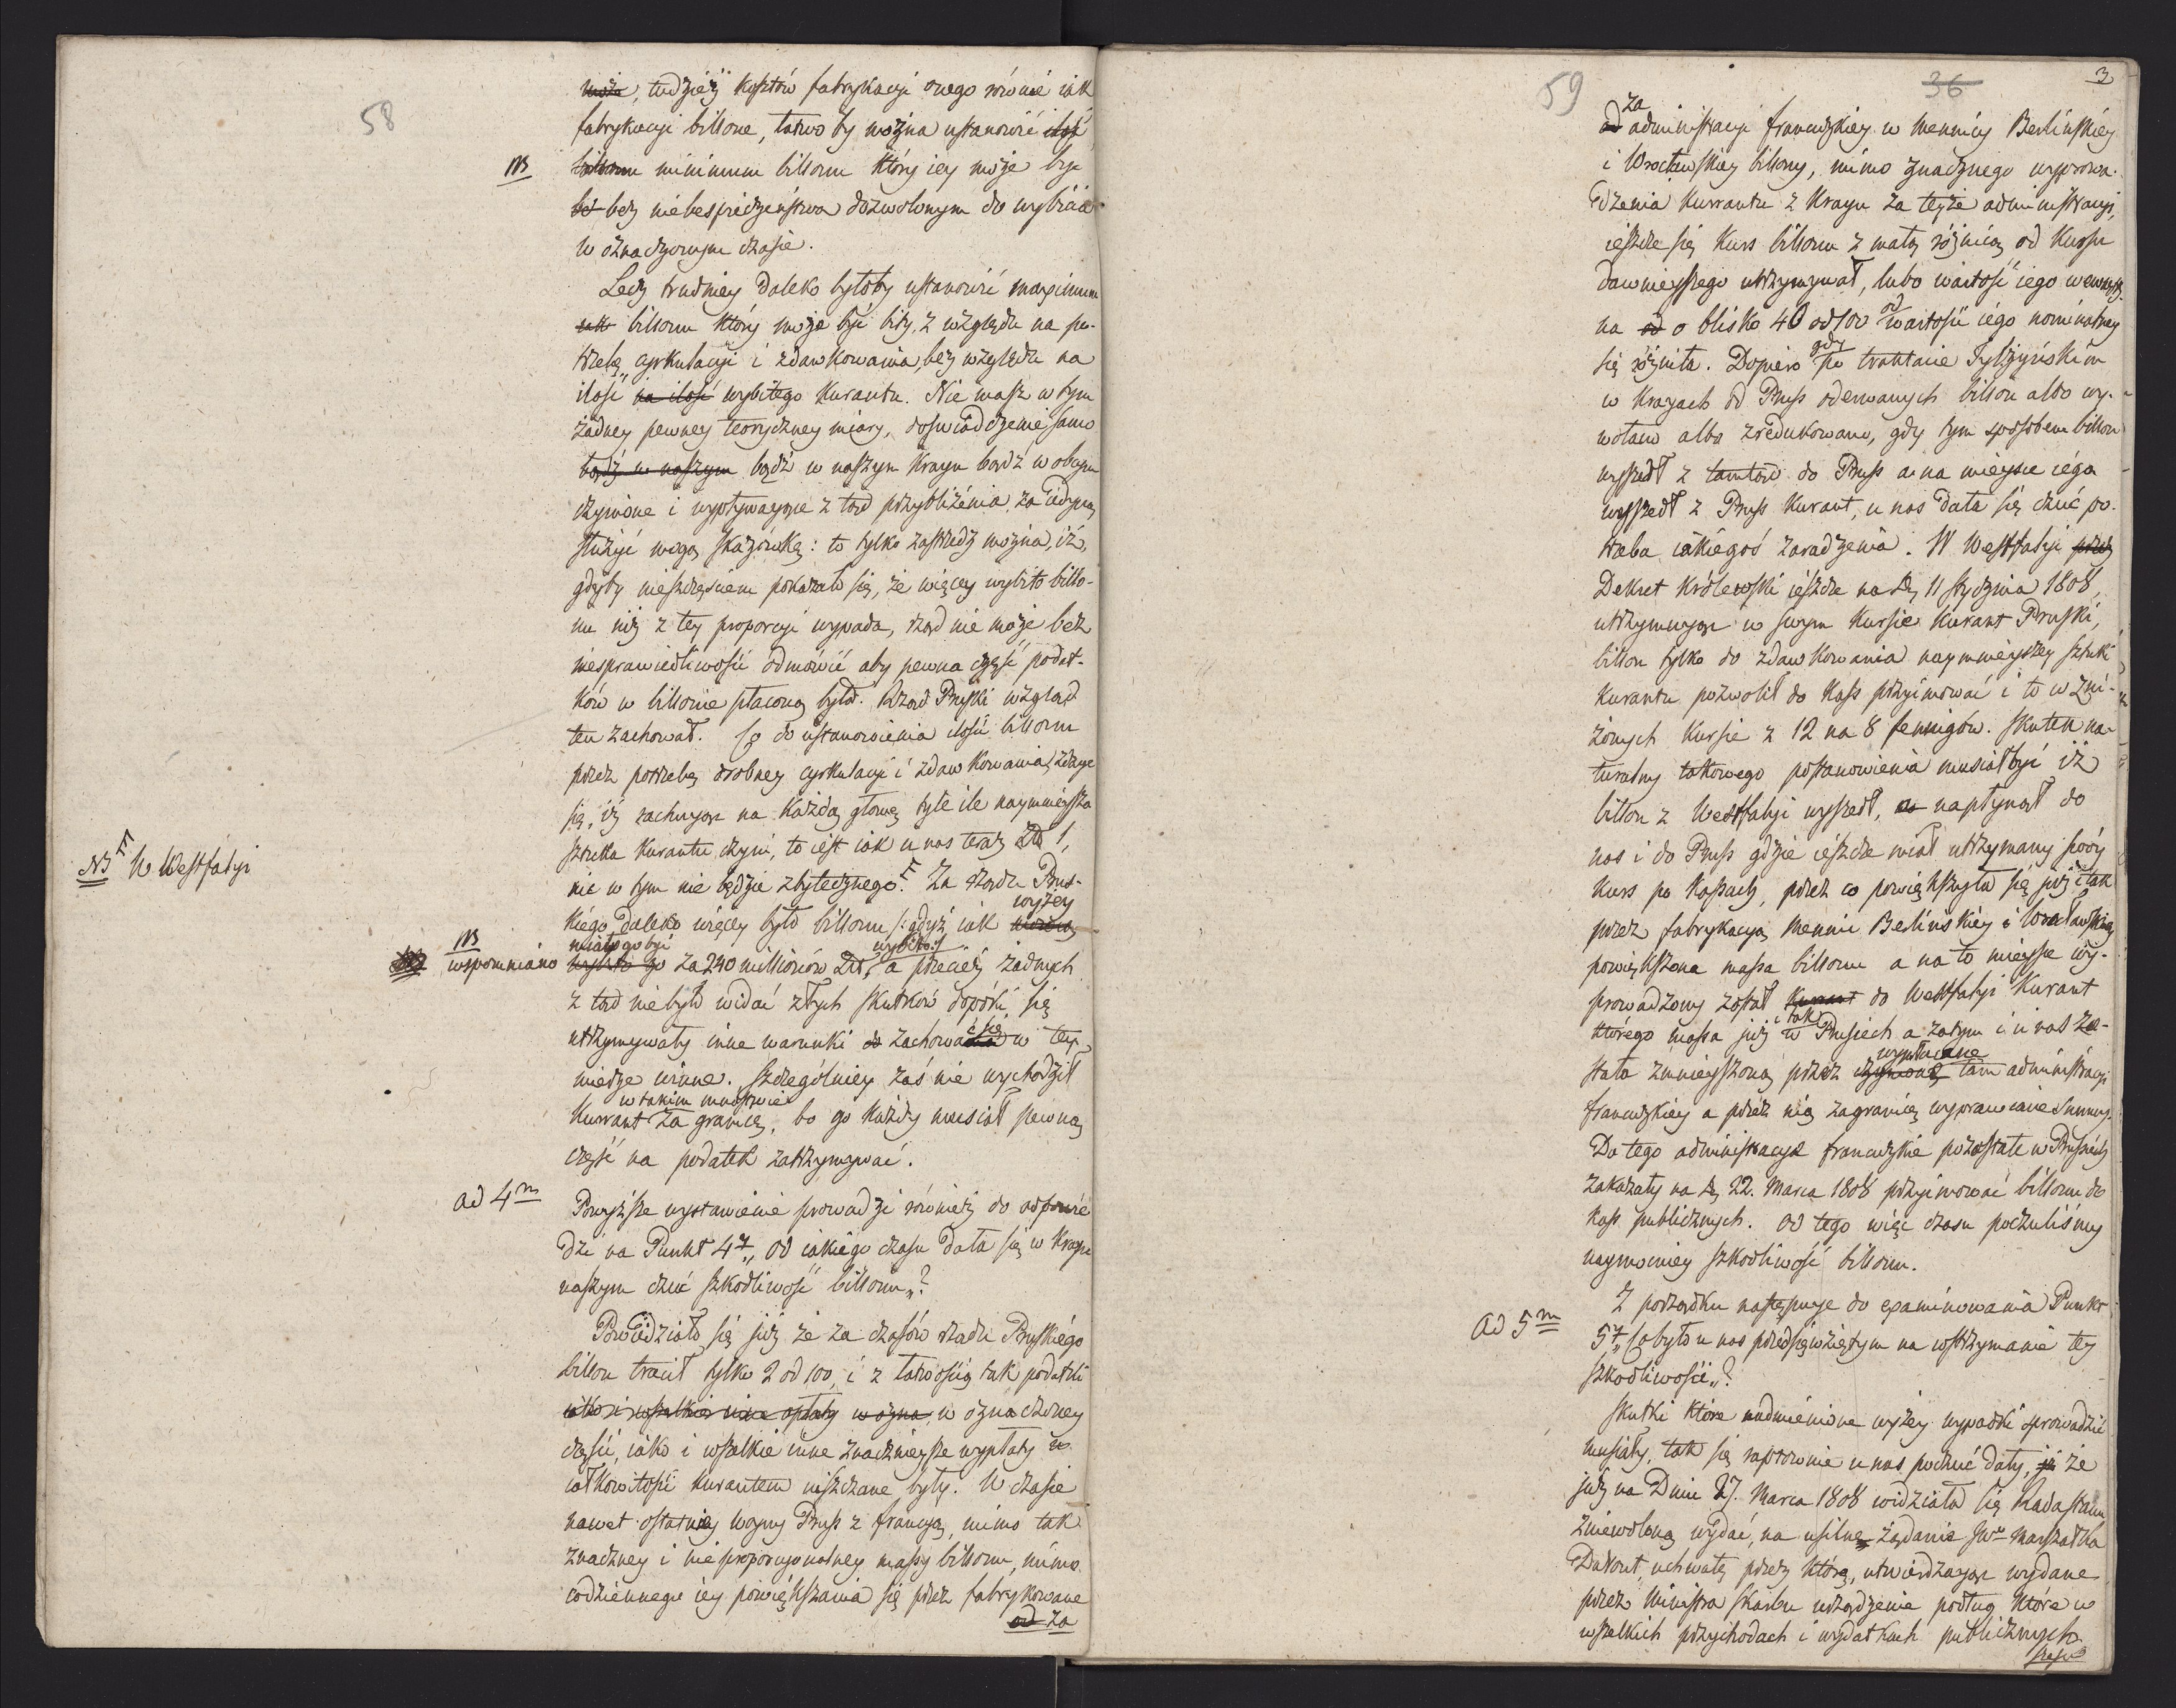 58
może, tudzież kosztów fabrykacyi onego równie iak
fabrykacyi billonu, łatwo by można ustanowić ilość
billonu minimum billonu który iey może być
bez bez niebespieczeństwa dozwolonym do wybicia
w oznaczonym czasie.
Lecz trudniey daleko byłoby ustanowić maximum
billonu który może być bity, z względu na po-
trzebę cyrkulacyi i zdawkowania, bez względu na
ilość na ilość wybitego kurantu. Nie masz w tym
żadney pewney teoryczney miary, doświadczenie samo
bądź w naszym bądź w naszym Kraju bądź w obcym
czynione i wypływaiące z tąd przybliżenia za iedyną
służyć mogą skazówkę: to tylko zastrzedz można, iż,
gdyby nieszczęściem pokazało się, że więcey wybito billo-
nu niż z tey proporcyi wypada, rząd nie może bez
niesprawiedliwości odmówić aby pewna część podat-
ków w billonie płacona była. Rząd Pruski wzgląd
ten zachował. Co do ustanowienia ilości billonu
przez potrzebę drobney cyrkulacyi i zdawkowania, zdaje
się, iż rachując na każdą głowę tyle ile naymnieysza
sztuka kurantu czyni, to iest iak u nas teraz Zł 1,
nic w tym nie będzie zbytecznego. Za rządu Prus-
NB W Westfalyi
kiego daleko więcey było billonu /: gdyż iak wyżey
NB wspomniano miało go być wybito go za 240 millionów Złł, wybito :/ a przecież żadnych
z tąd nie było widać złych skutków dopóki się
utrzymywały inne warunki do zachowania się w tey
mierze winne. Szczególniey zaś nie wychodził
w takim mnóstwie
Kurrant za granicę, bo go każdy musiał pewną
część na podatek zatrzymywać.
ad 4m
Powyższe wystawienie prowadzi również do odpowie
dzi na Punkt 4ty "Od iakiego czasu dała się w Kraju
naszym czuć szkodliwość billonu"?
Powiedziało się już że za czasów rządu Pruskiego
billon tracił tylko 2 od 100, i z łatwością tak podatki
iako i wszelkie inne opłaty w ozna, w oznaczoney
części, iako i wszelkie inne znacznieysze wypłaty w
całkowitości kurantem uiszczane były. W czasie
nawet ostatniey woyny Pruss z francyą, mimo tak
znaczney i nieproporcyonalney massy billonu, mimo
codziennego iey powiększania się przez fabrykowane
od za
59
36
3
za
od administracyi francuzkiey w Mennicy Berlińskiey
i Wrocławskiey billony, mimo znacznego wyprowa-
dzenia Kurrantu z Kraju za teyże administracyi,
ieszcze się Kurs billonu z małą różnicą od Kursu
dawnieyszego utrzymywał, lubo wartość iego wewnętrz-
na od o blisko 40 od 100 od wartości iego nominalney
się różniła. Dopiero gdy po traktacie Tylżyńskim
w Krajach od Pruss oderwanych billon albo wy-
wołano albo zredukowano, gdy tym sposobem billon
wyszedł z tamtąd do Pruss a na mieysce iego
wyszedł z Pruss Kurant, u nas dała się czuć po-
trzeba iakiegoś zaradzenia. W Westfalyi przez
Dekret Królewski ieszcze na Dn 11 Stycznia 1808,
utrzymując w swym Kursie Kurant Pruski,
billon tylko do zdawkowania naymnieyszey sztuki
kurantu pozwolił do Kass przyimować i to w zni-
żonych Kursie z 12 na 8 fenigów. Skutek na-
turalny takowego postanowienia musiał być iż
billon z Westfalyi wyszedł, a napłynął do
nas i do Pruss gdzie ieszcze miał utrzymany swóy
kurs po Kassach, przez co powiększyła się już i tak
przez fabrykacyą Mennic Berlińskiey i Wrocławskiey
powiększona massa billonu a na to mieysce wy-
prowadzony został Kurant do Westfalyi Kurant
którego massa już i tak w Prusiech a zatym i u nas zo-
stała zmnieyszoną przez czynione wypłacane tam administracyi
francuzkiey a przez nią zagranicę wyprawiane Summy.
Do tego administracye francuzkie pozostałe w Prusiech
zakazały na Dn 22. Marca 1808 przyimować billonu do
kass publicznych. Od tego więc czasu poczuliśmy
naymocniey szkodliwość billonu.
Ad 5m
Z porządku następuje do examinowania Punkt
5ty "Co było u nas przedsięwziętym na wstrzymanie tey
szkodliwości"?
Skutki które nadmienione wyżey wypadki sprowadzić
musiały, tak się raptownie u nas poczuć dały, iż że
już na Dniu 27. Marca 1808 widziała się Rada Stanu
zniewoloną wydać, na usilne żądanie JWo Marszałka
Davout, uchwałę przez którą, utwierdzając wydane
przez Ministra Skarbu urządzenie podług które w
wszelkich przychodach i wydatkach publicznych